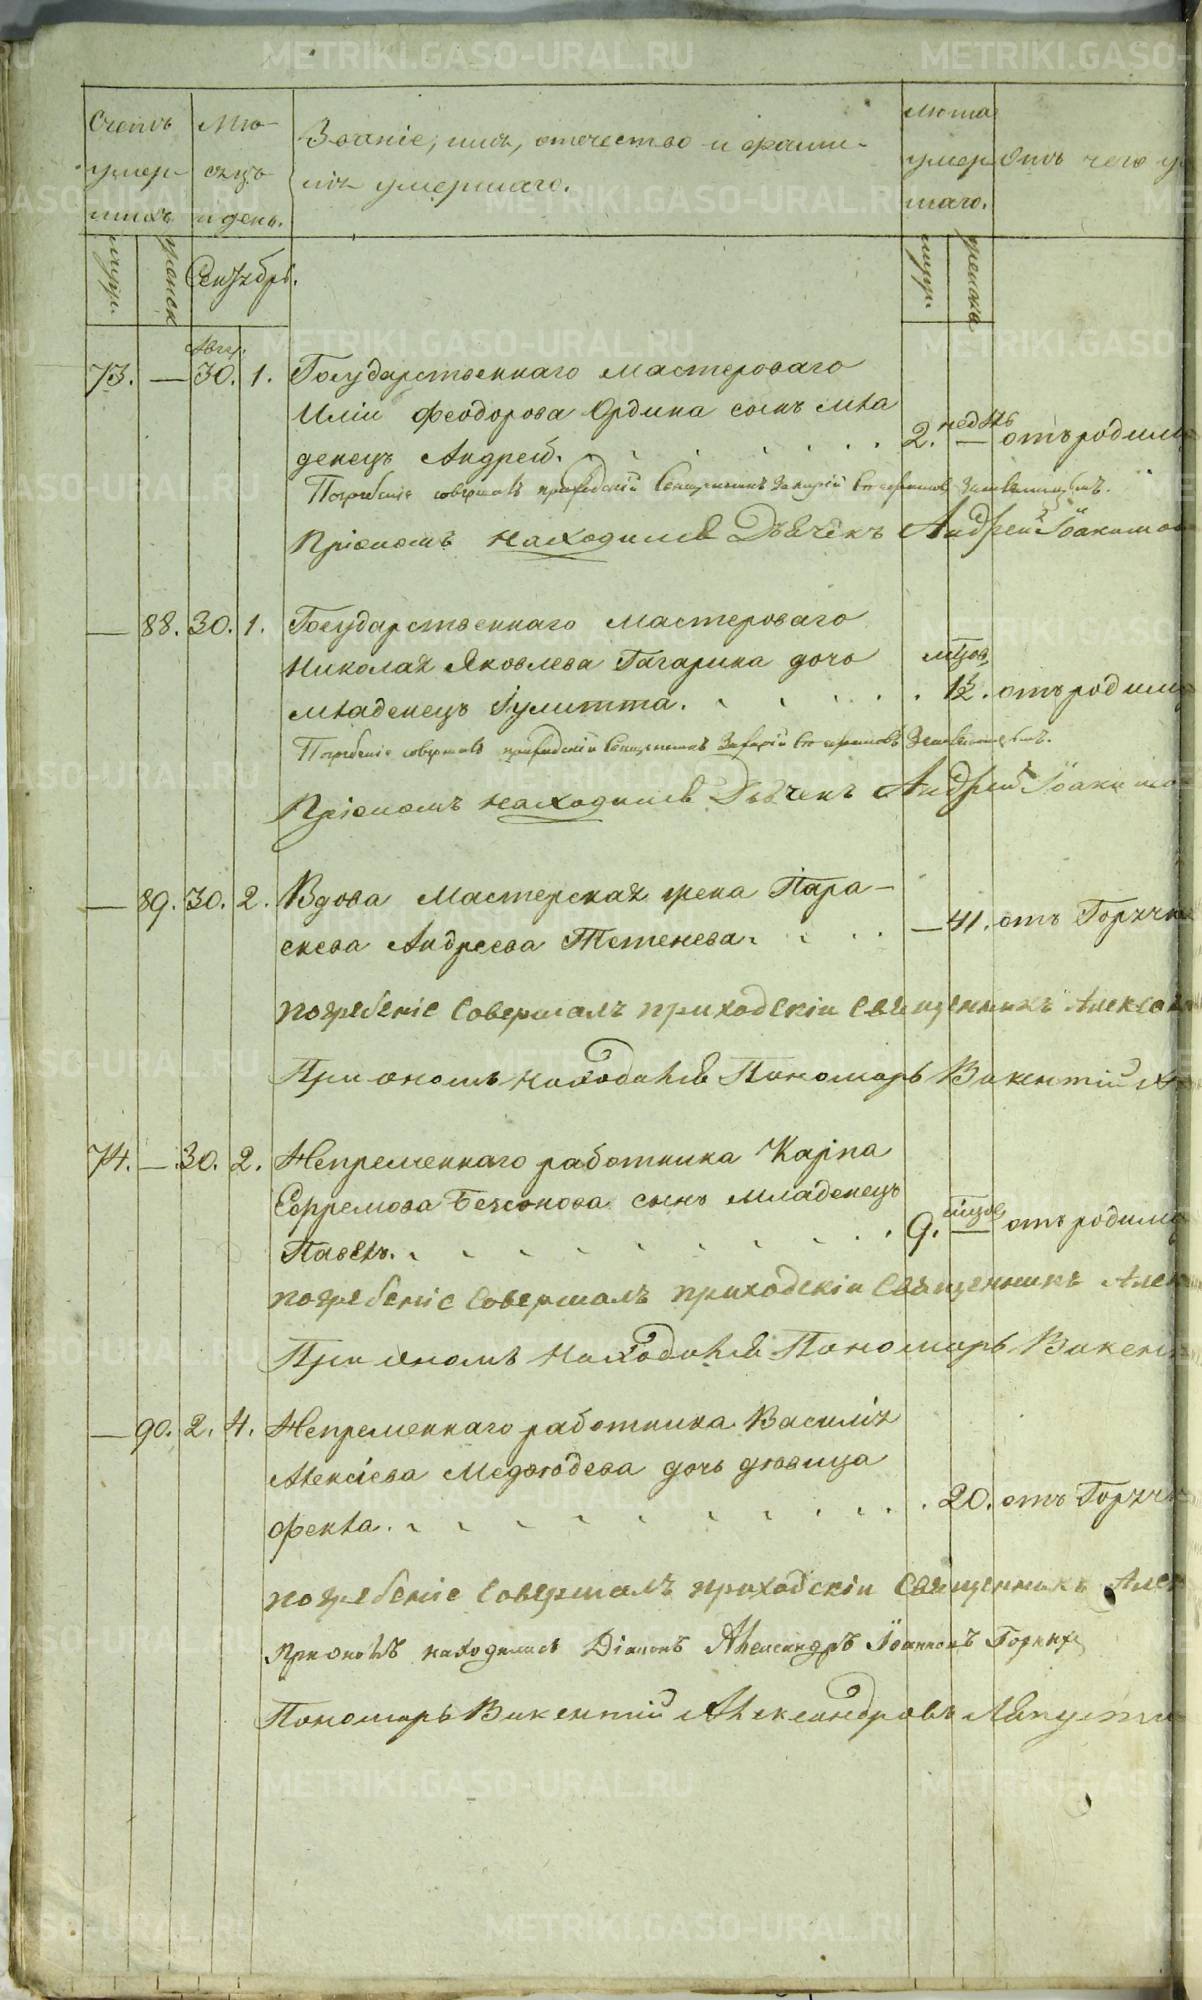 Счетъ умер- шихъ
Мѣ- сяцъ и день.
Званіе, имя, отечество и фами-
лія умершаго.
Лѣта умер- шаго.
Отъ чего у
муж. женск Сентябрь. муж. женска
Авгу.
73. — 30. 1. Государственнаго мастероваго
Иліи Феодорова Ордина сынъ мла
денецъ Андрей. 2. недѣль — отъ родим
Погребеніе совершалъ приходскій Священникъ Захарій
При ономъ находился Дьячекъ Андрей Іоакимо
— 88. 30. 1. Государственнаго мастероваго
Николая Яковлева Гагарина дочь мѣсяцов
младенецъ Іулитта. 1½. отъ родим
Погребеніе совершалъ приходскій Священникъ Захарій
При ономъ находился Дьячекъ Андрей Іоакимо
— 89. 30. 2. Вдова Мастерская жена Пара-
скева Андреева Тетенева. — 41. отъ Горячк
погребеніе Совершалъ приходскій Священникъ Алекса
При ономъ находился Пономарь Викентий
74. — 30. 2. Непременнаго работника Карпа
Ефремова Безсонова сынъ младенецъ
Павелъ. 9. мѣсяцов — отъ родим
погребеніе Совершалъ приходскій Священникъ Алек
При ономъ находился Пономарь Викен
— 90. 2. 4. Непременнаго работника Василія
Алексіева Медвѣдева дочь дѣвица
Фекла. 20. отъ Горячк
погребеніе Совершалъ приходскій Священникъ Алек
При ономъ находились Діаконъ Александръ Іоанновъ Горныхъ
Пономарь Викентий Александровъ Ляпусти